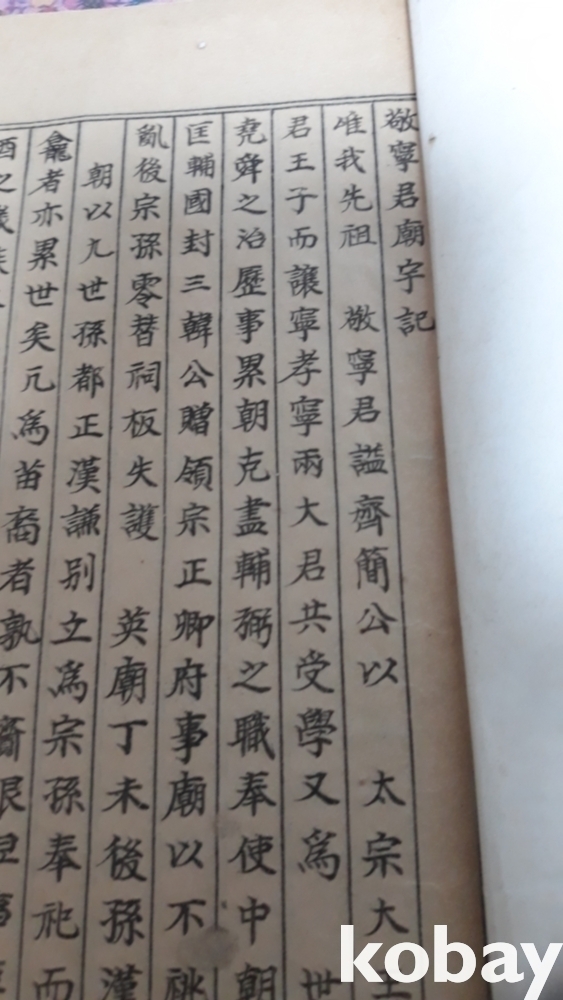 敬寧君廟宇記
惟我先祖 敬寧君謚齊簡公以 太宗大王
君王子而讓寧孝寧兩大君共受學又爲 世
堯舜之治歷事累朝克盡輔弼之職奉使中朝
匡輔國封三韓公贈領宗正卿府事廟以不祧
亂後宗孫零替祠板失護 英廟丁未後孫漢
朝以九世孫都正漢謙別立爲宗孫奉祀而
龕者亦累世矣凡爲苗裔者孰不齎恨
kobay